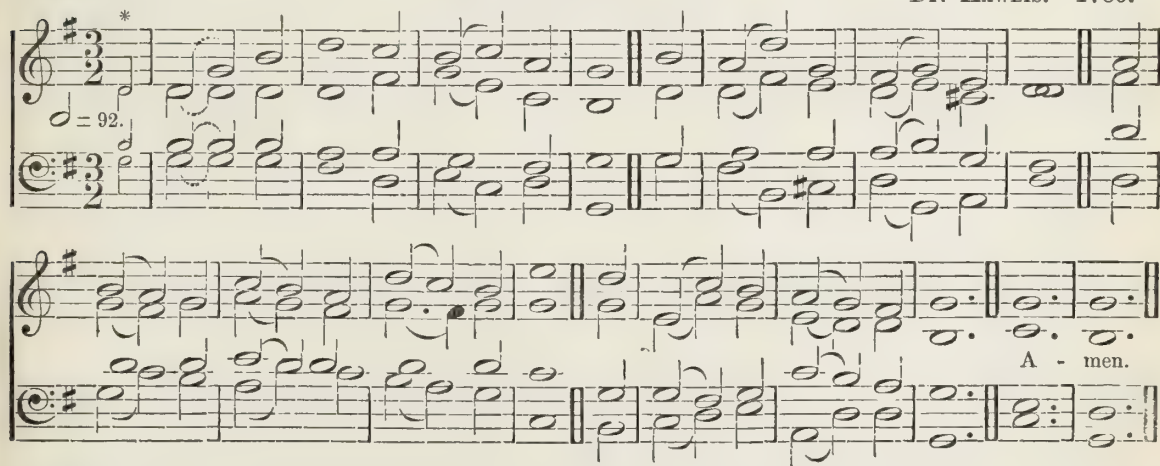 = 92.
A - men.